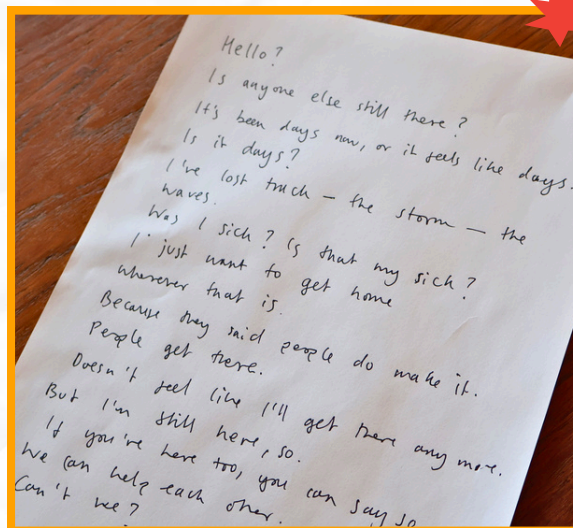 Hello?
Is anyone else still there?
It's been days now, or it feels like days.
Is it days?
I've lost track – the storm – the
waves.
Was I sick? Is that my sick?
I just want to get home
wherever that is.
Because they said people do make it.
People get there.
Doesn't feel like I'll get there any more.
But I'm still here, so.
If you're here too, you can say so
We can help each other.
Can't we?